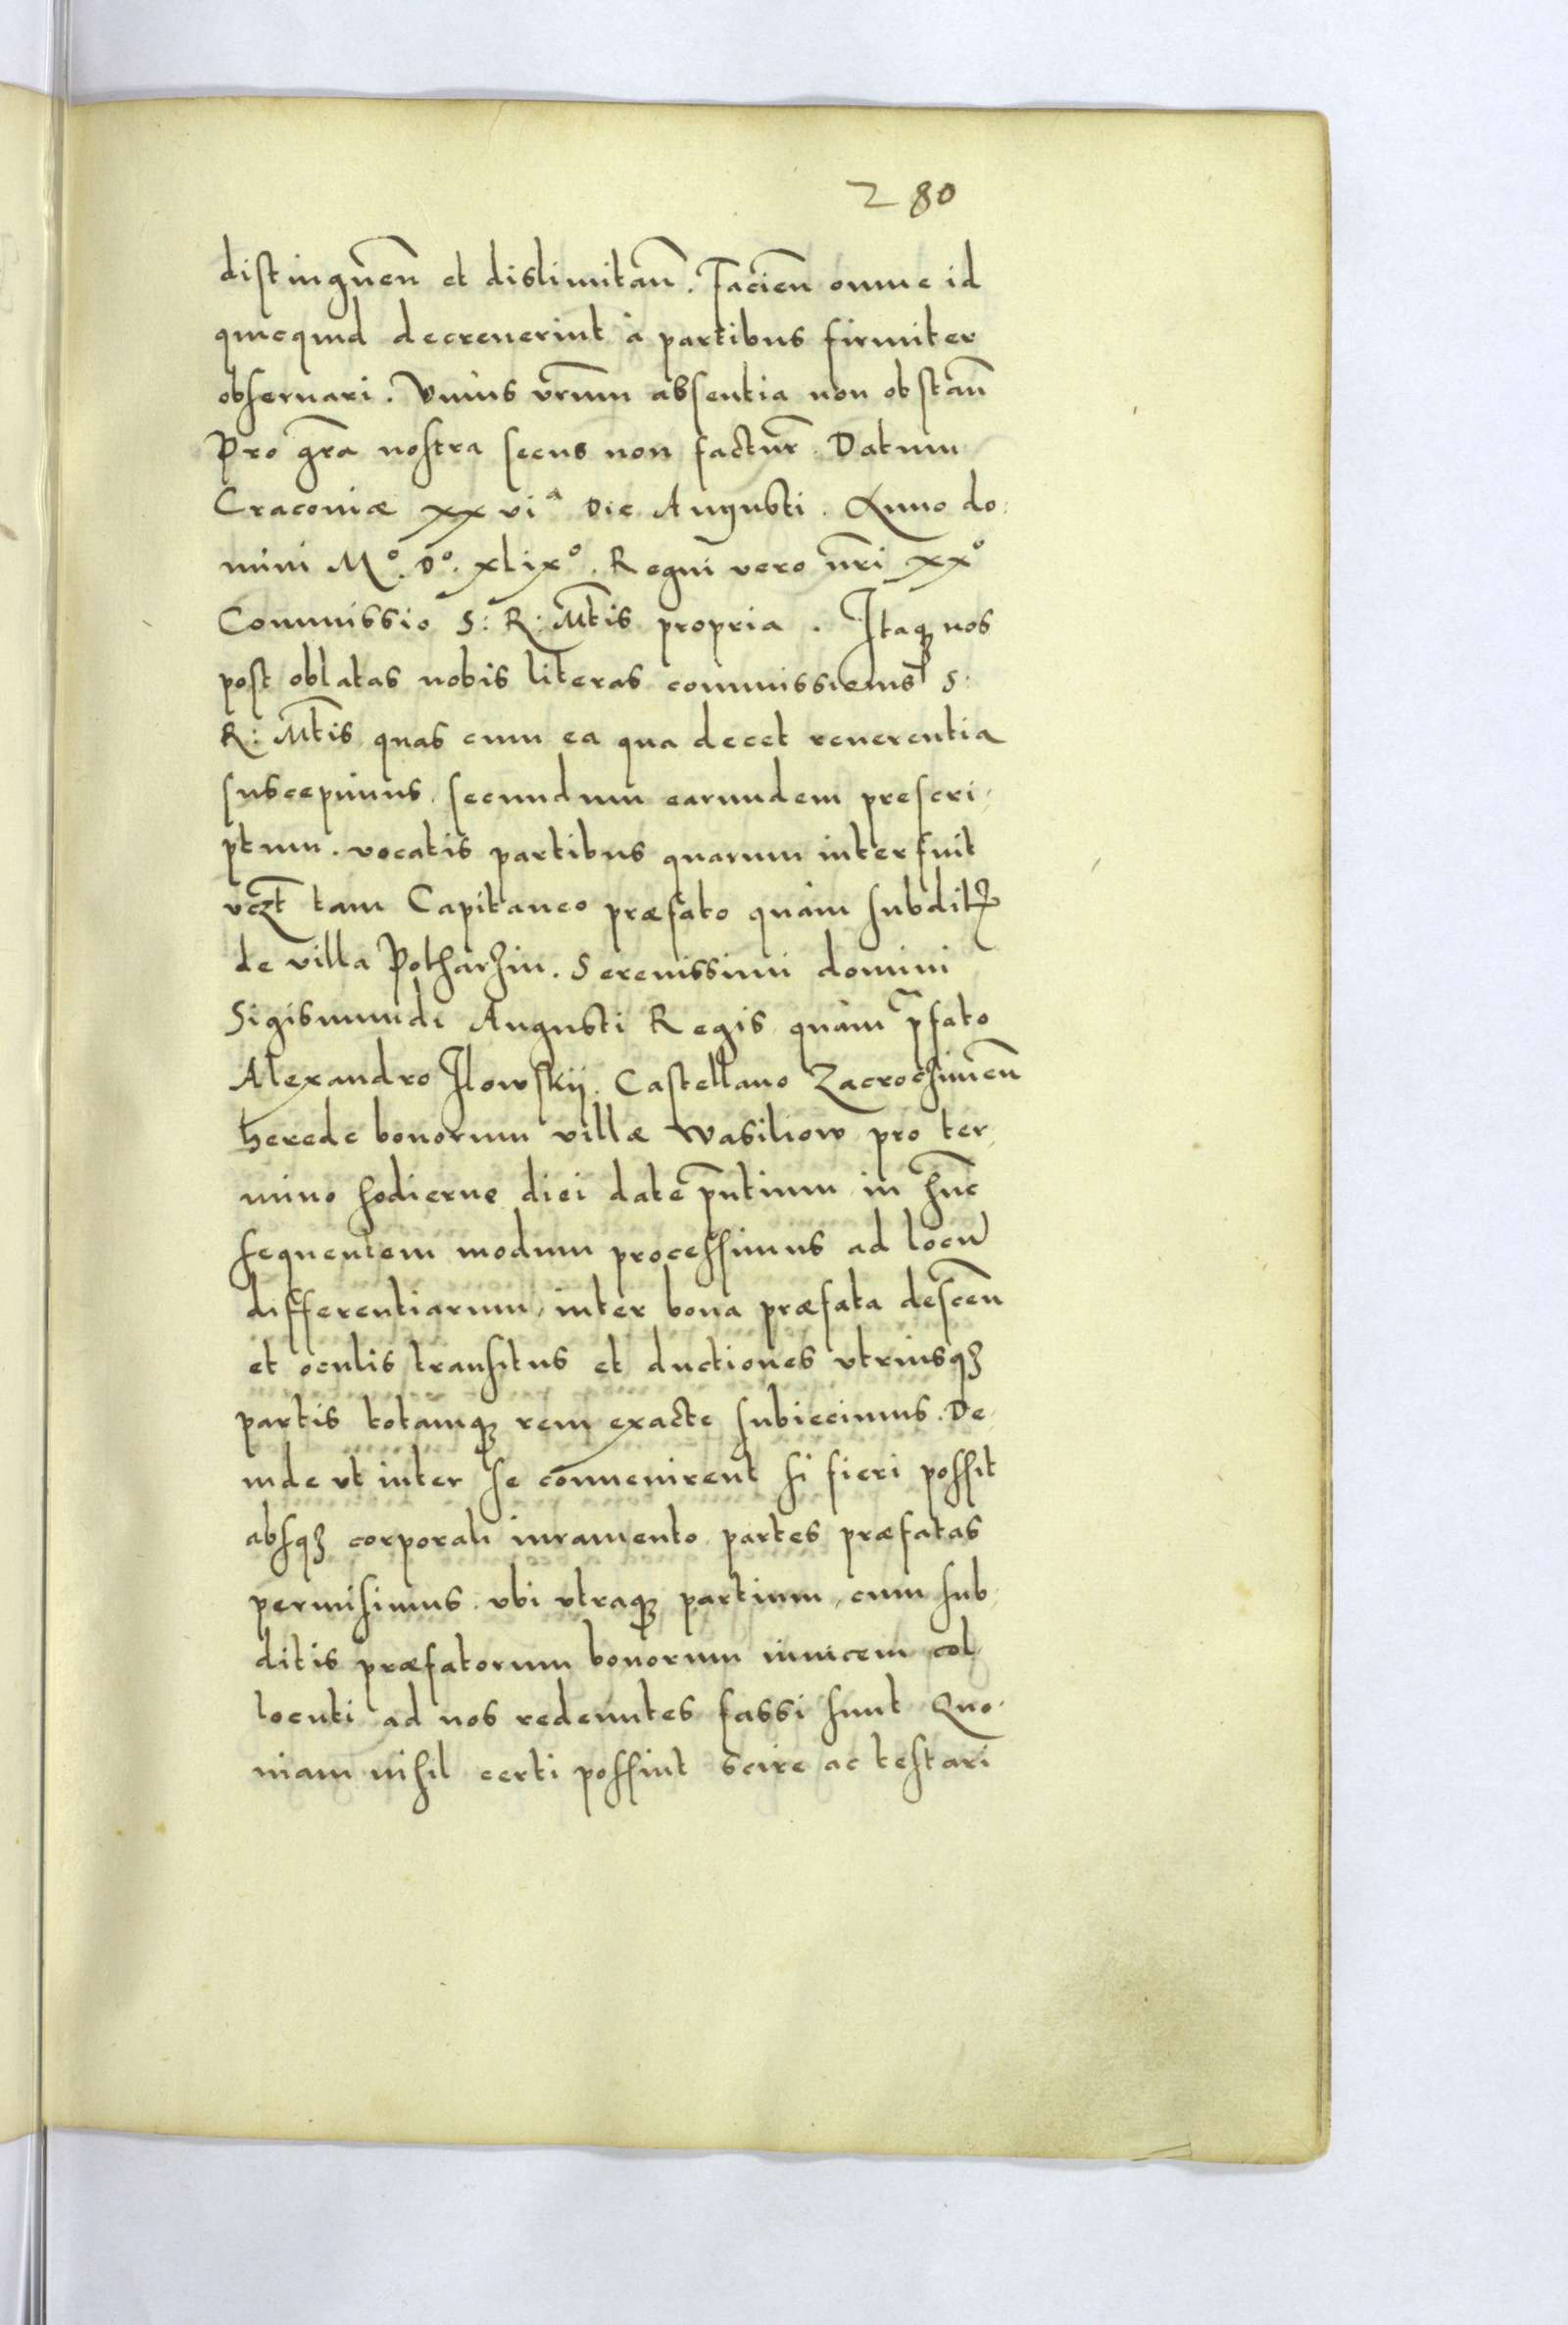 280
distinguen̄ et dislimitan̄. Facien̄ omne id
quicquid decreuerint à partibus firmiter
obseruari. Vnius vrm̄m absentia non obstan̄
Pro gr̄a nostra secus non factur̄. Datum
Cracoviæ xxviᵃ Die Augusti. Anno do:
mini Mº. Dº. xlixº. Regni vero nr̄i xxº
Commissio S: R: Mt̄is propria. Itaqꝫ nos
post oblatas nobis literas commissiems S:
R: Mt̄is quas cum ea qua decet reuerentia
suscepimus. secundum earundem prescri-
ptum. vocatis partibus quarum interfuit
vꝫt̄ tam Capitaneo præfato quàm subditꝭ
de villa Potharzin. Serenissimi domini
Sigismundi Augusti Regis quàm p̄fato
Alexandro Ilowskij. Castellano Zacrochimen̄
herede bonorum villæ Wasiliow pro ter
mino hodierne diei date p̄ntium in hūc
sequentem modum processimus ad locū
differentiarum, inter bona præfata descen̄
et oculis transitus et ductiones vtriusqꝫ
partis totamqꝫ rem exacte subiecimus. De-
inde vt inter se conuenirent si fieri possit
absqꝫ corporali iuramento partes præfatas
permisimus. vbi vtraqꝫ partium, cum sub
ditis præfatorum bonorum inuicem col
locuti ad nos redeuntes fassi sunt Quo-
niam nihil certi possint scire ac testari